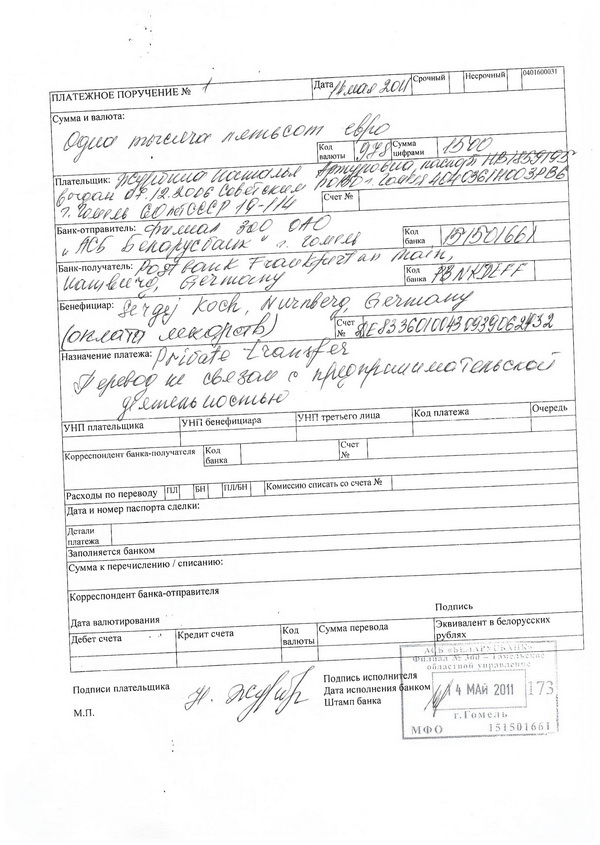 ПЛАТЕЖНОЕ ПОРУЧЕНИЕ № 1 Дата 14 мая 2011 Срочный Несрочный 0401600031
Сумма и валюта:
Одна тысяча пятьсот евро
Код валюты 978 Сумма цифрами 1500
Плательщик: Наталья Артуровна, паспорт НВ1859195
выдан 07.12.2006 Советским РОВД г. Гомеля
г. Гомель Счет №
Банк-отправитель: Филиал 300 ОАО
„АСБ Беларусбанк" г. Гомель Код банка 151501661
Банк-получатель: Postbank Frankfurt an main,
Hamburg, Germany Код банка PBNKDEFF
Бенефициар: Sergej Koch, Nurnberg, Germany
(оплата лекарств) Счет № DE83360100430939062432
Назначение платежа: Private transfer
Перевод не связан с предпринимательской
деятельностью
УНП плательщика УНП бенефициара УНП третьего лица Код платежа Очередь
Корреспондент банка-получателя Код банка Счет №
Расходы по переводу ПЛ БН ПЛ/БН Комиссию списать со счета №
Дата и номер паспорта сделки:
Детали платежа
Заполняется банком
Сумма к перечислению / списанию:
Корреспондент банка-отправителя
Подпись
Дата валютирования
Дебет счета Кредит счета Код валюты Сумма перевода Эквивалент в белорусских рублях
АСБ «БЕЛАРУСБАНК»
Филиал № 300 – Гомельское
областной управление
Подписи плательщика Подпись исполнителя
Дата исполнения банком 14 МАЙ 2011 173
М.П. Штамп банка
г.Гомель
МФО 151501661